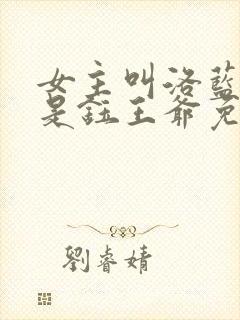 女主叫洛藍
是鈺王爺免
劉睿婧